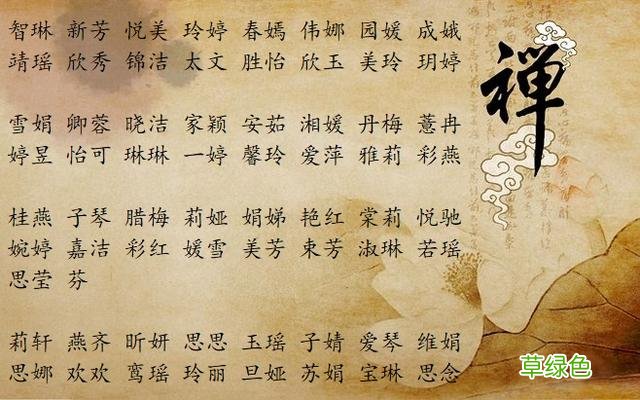 智琳 新芳 悦美 玲婷 春嫣 伟娜 园媛 成娥
靖瑶 欣秀 锦洁 太文 胜怡 欣玉 美玲 玥婷
雪娟 卿蓉 晓洁 家颖 安茹 湘媛 丹梅 薏冉
婷昱 怡可 琳琳 一婷 馨玲 爱萍 雅莉 彩燕
桂燕 子琴 腊梅 莉娅 娟娣 艳红 棠莉 悦驰
婉婷 嘉洁 彩红 媛雪 美芳 束芳 淑琳 若瑶
思莹 芬
莉轩 燕齐 昕妍 思思 玉瑶 子婧 爱琴 维娟
思娜 欢欢 鸾瑶 玲丽 旦娅 苏娟 宝琳 思念
禅
草绿色